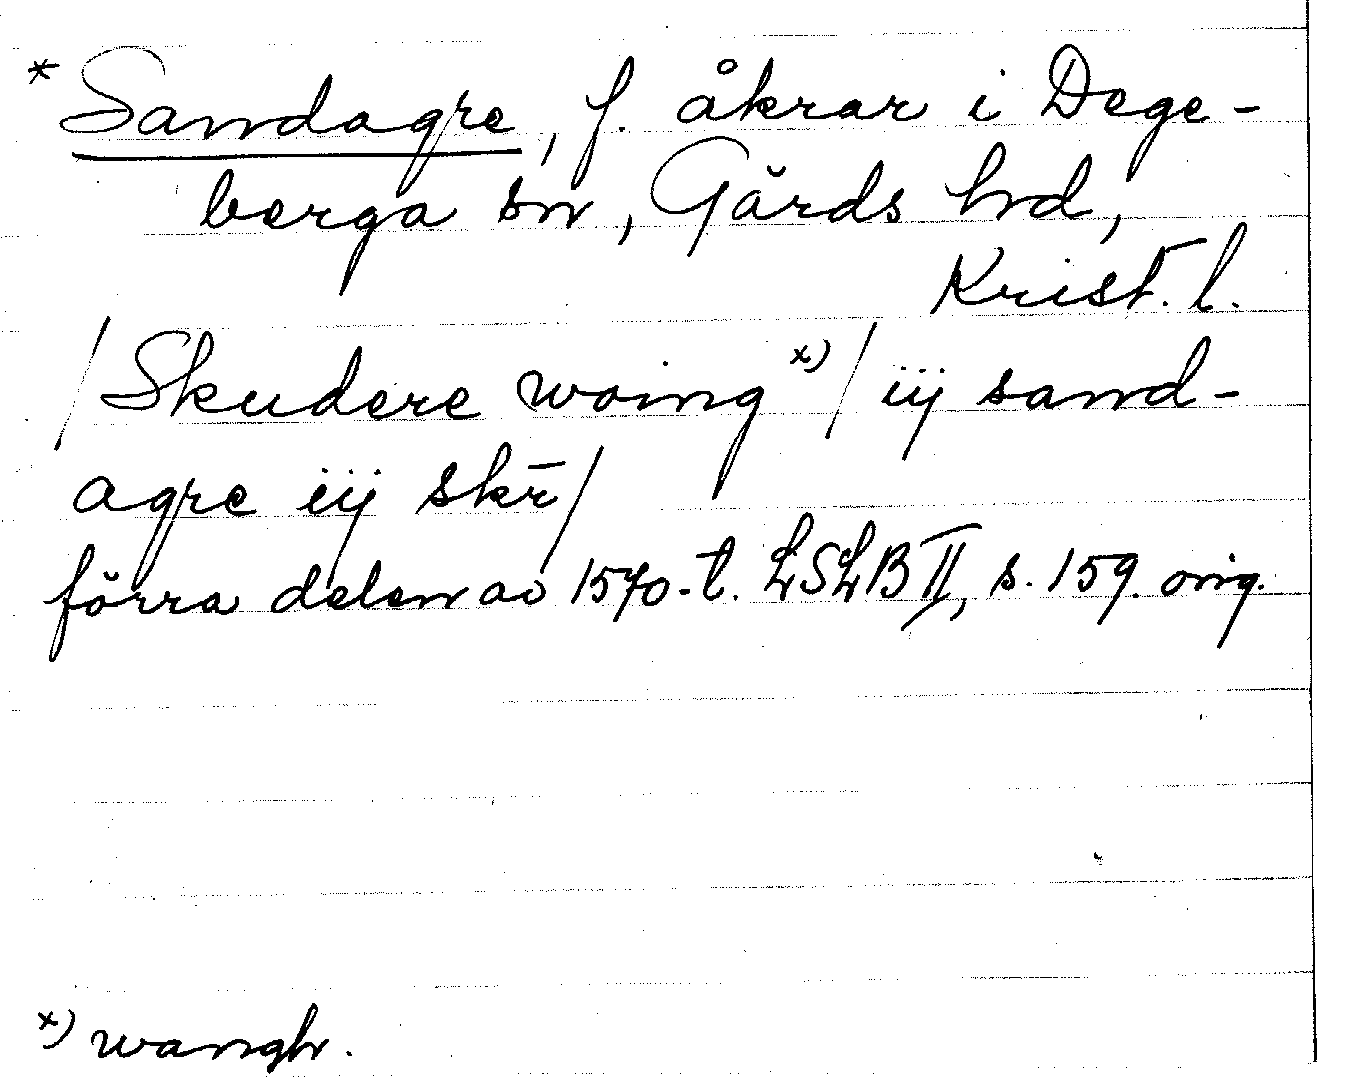 * Sandagre, f. åkrar i Dege-
berga sn, Gärds hd,
Krist. l.
/Skudere waing x)/ iij sand-
agre iij skr̄/
förra delen av 1570-t. LSLB II, s. 159. orig.
x) wangh.